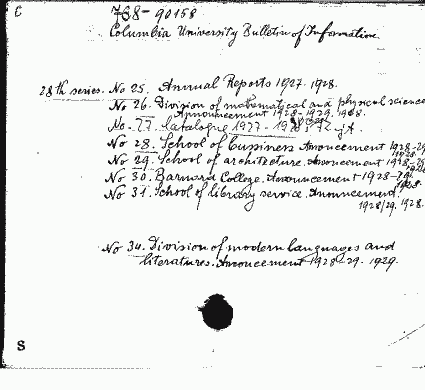 C
768-90158
Columbia University Bulletin of Information
28th series. No 25. Annual Reports 1927. 1928.
No 26. Division of mathematical and physical science
Announcement 1928-1929. 1928.
No. 27. Catalogue 1927-
No 28. School of bussiness Anouncement 1928-29
1928.
No 29. School of architecture. Anouncement 1928-29
No 30. Barnard College. Anouncement 1928-29.
1928.
No 31. School of library service. Anouncement
1928/29. 1928.
No 34. Division of modern languages and
literatures. Anoucement 1928-29. 1929.
S